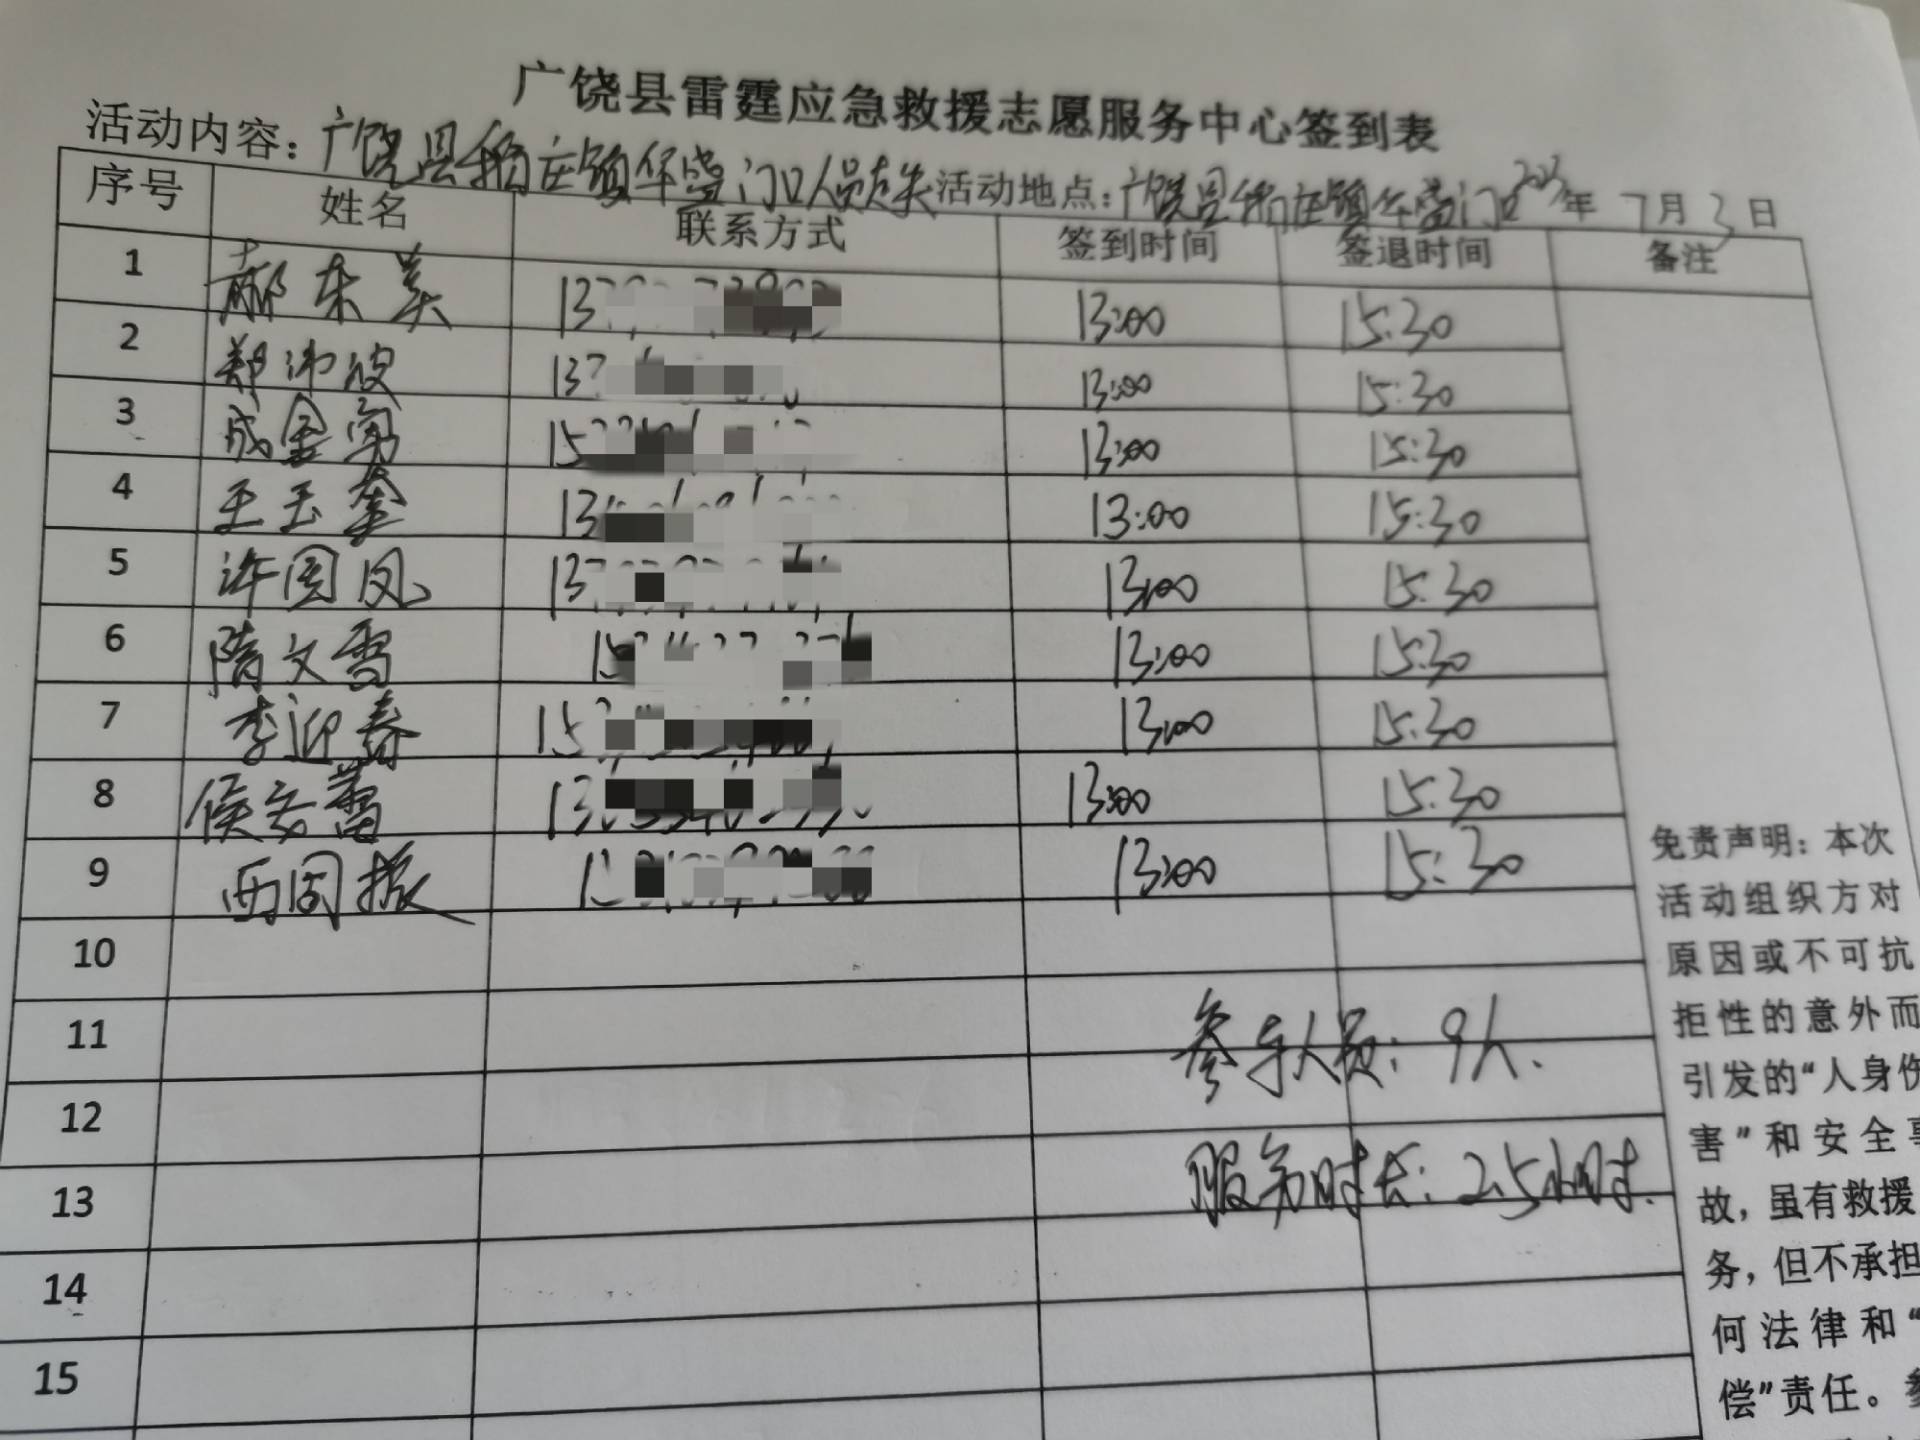 广饶县雷霆应急救援志愿服务中心签到表
活动内容：广饶县稻庄镇华盛门口人员走失 活动地点：广饶县稻庄镇华盛门口 年 7月3日
序号 姓名 联系方式 签到时间 签退时间 备注
1 郝东美 13 13:00 15:30
2 郑沛波 137 13:00 15:30
3 成金勇 15 13:00 15:30
4 王玉奎 13 13:00 15:30
5 许国凤 137 13:00 15:30
6 隋文雪 15 13:00 15:30
7 李迎春 15 13:00 15:30
8 侯 蕾 13 13:00 15:30
9 西周振 13:00 15:30
10
11
12
13
14
15
参与人员：9人.
服务时长：2.5小时.
免责声明：本次
活动组织方对
原因或不可抗
拒性的意外而
引发的“人身伤
害”和安全事
故，虽有救援
务，但不承担
何法律和“
偿”责任。参